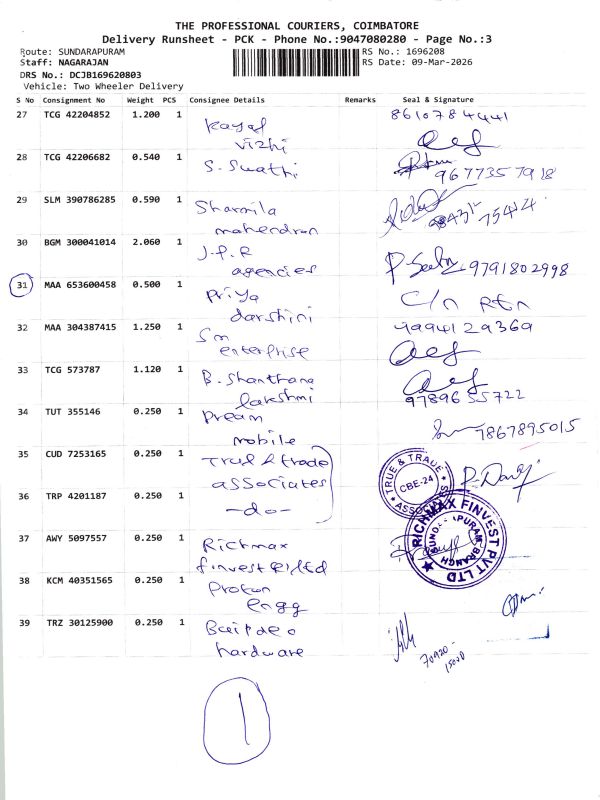 THE PROFESSIONAL COURIERS, COIMBATORE
Delivery Runsheet - PCK - Phone No.:9047080280 - Page No.:3
Route: SUNDARAPURAM
RS No.: 1696208
Staff: NAGARAJAN
RS Date: 09-Mar-2026
DRS No.: DCJB169620803
Vehicle: Two Wheeler Delivery
S No Consignment No Weight PCS Consignee Details Remarks Seal & Signature
27 TCG 42204852 1.200 1 Kayal 8610784441
vizhi
28 TCG 42206682 0.540 1 S. Swathi
9677357918
29 SLM 390786285 0.590 1 Sharmila
mahendran
30 BGM 300041014 2.060 1 J.P.R
agencies 9791802998
31 MAA 653600458 0.500 1 Priya C/n RTn
darshini
32 MAA 304387415 1.250 1 Sm 9994129369
enterprise
33 TCG 573787 1.120 1 B. Shanthana
lakshmi 9789655722
34 TUT 355146 0.250 1 Pream
mobile 7867895015
35 CUD 7253165 0.250 1 True & trade
associates
TRUE & TRADE ASSOCIATES
CBE-24
36 TRP 4201187 0.250 1 -do-
37 AWY 5097557 0.250 1 Richmax
finvest P ltd
RICHMAX FINVEST PVT LTD
SUNDARAPURAM BRANCH
38 KCM 40351565 0.250 1 Proton
engg
39 TRZ 30125900 0.250 1
hardware
70920-
15000
1